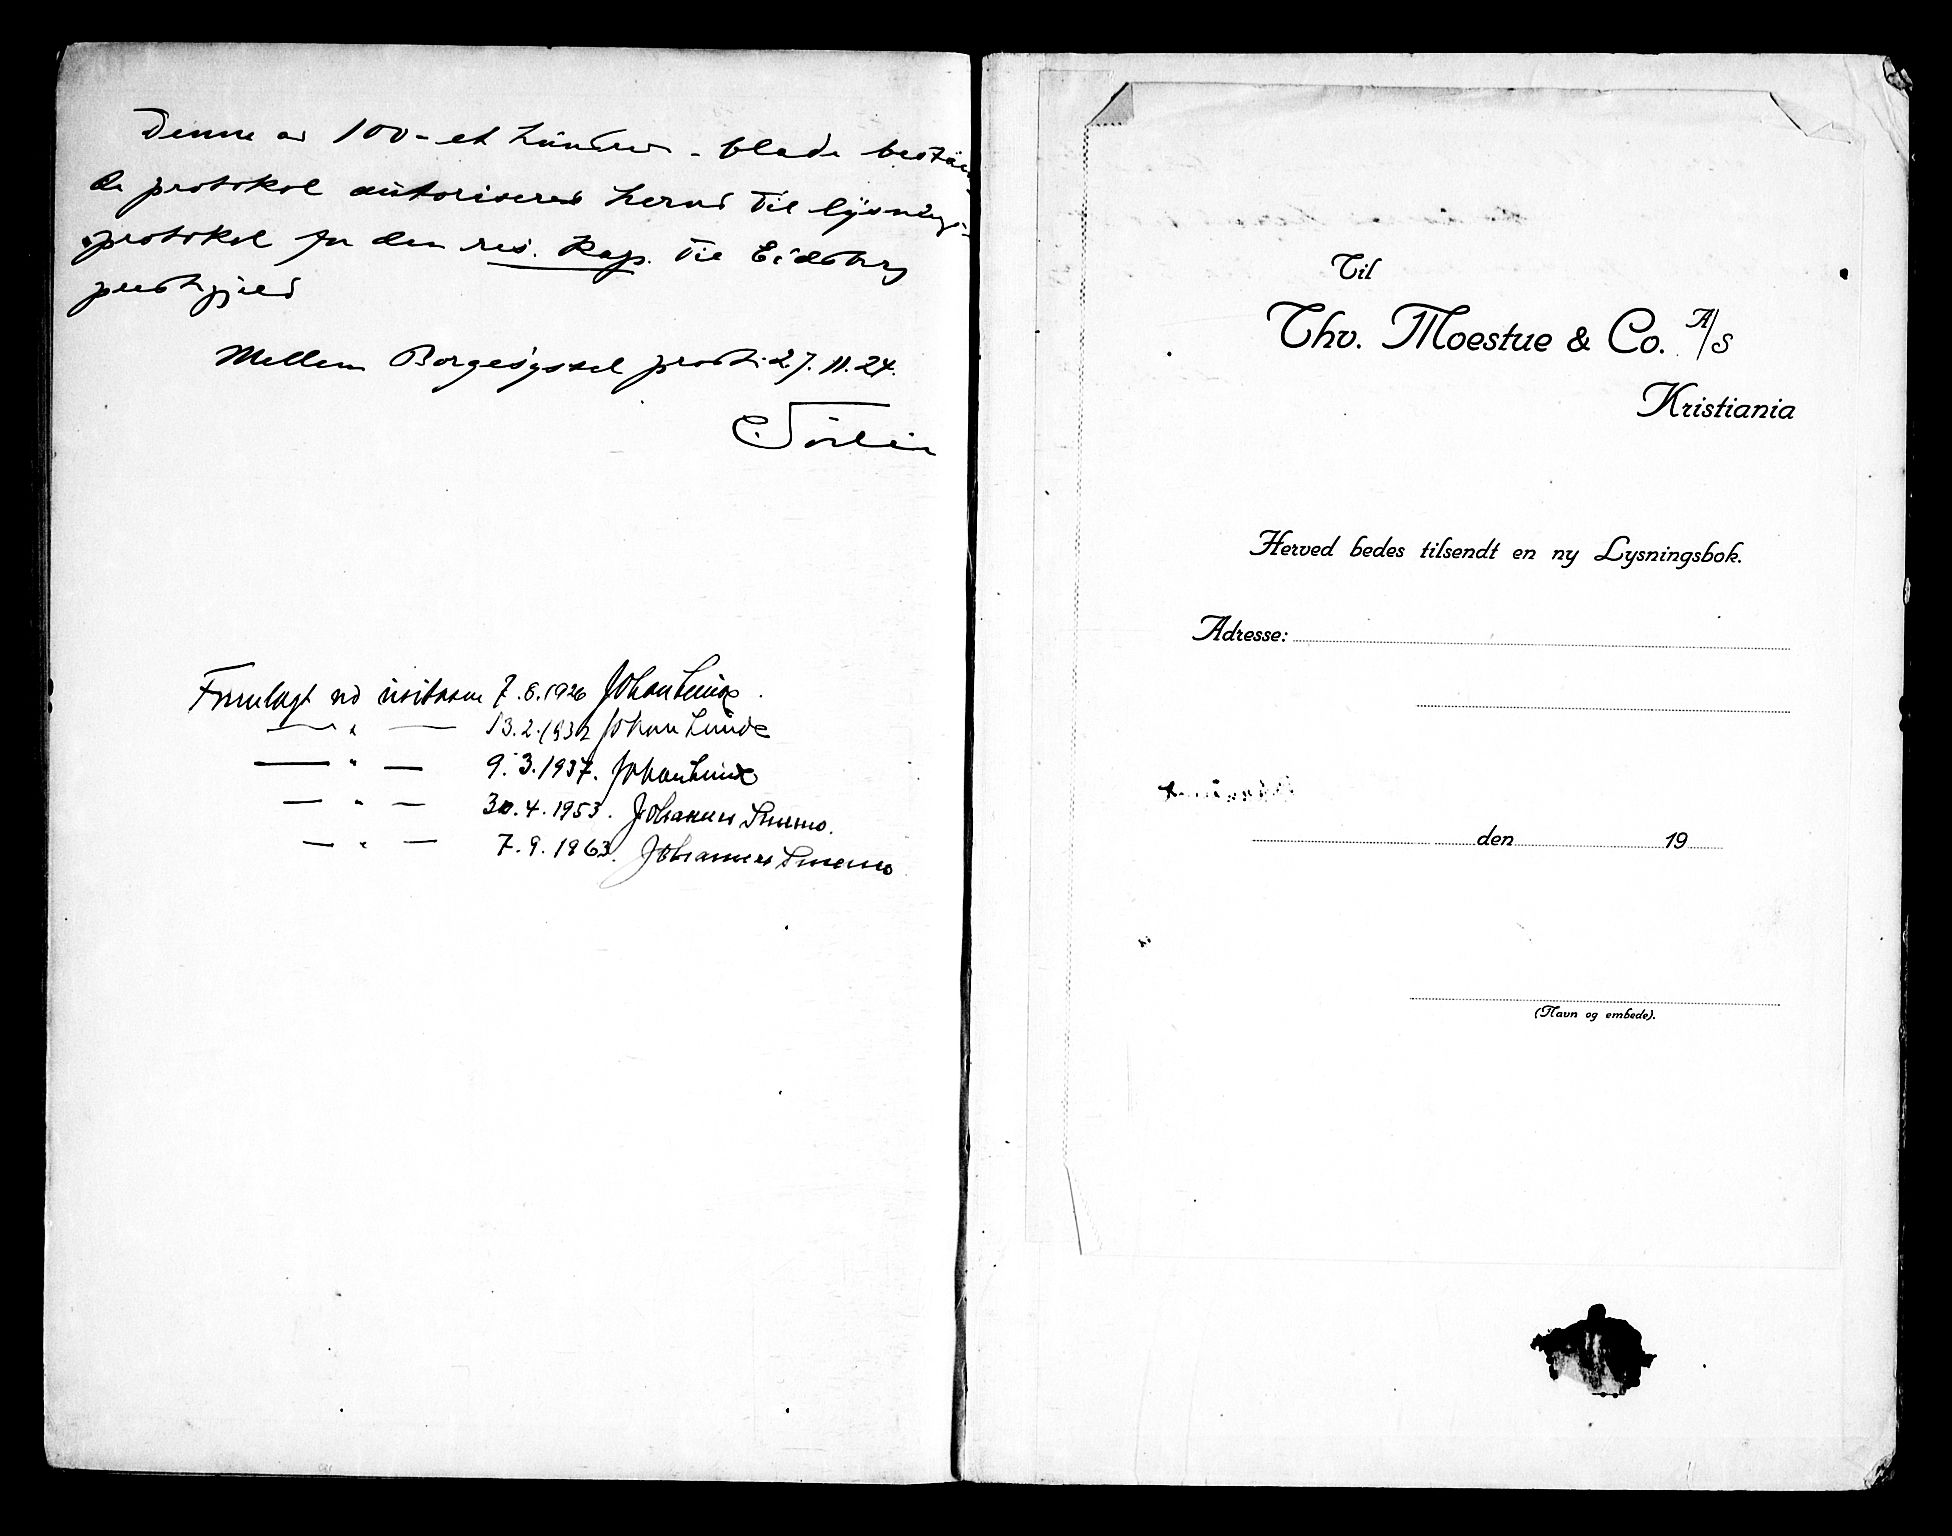 Denne av 100 - et hundrede - blade beståen-
de protokol autoriseres herved til lysnings-
protokol for den res. kap. til Eidsberg
prestegjeld
Mellem Borgesyssel prosti 27. 11. 24.
Fremlagt ved visitasen 7.6.1926 Johan Lunde.
— " — 13.2.1932 Johan Lunde
— " — 9.3.1937. Johan Lunde
— " — 30.4.1953. Johannes Smemo.
— " — 7.9.1963. Johannes Smemo
Til
Thv. Moestue & Co. A/S
Kristiania
Herved bedes tilsendt en ny Lysningsbok.
Adresse:
den 19
(Navn og embede).